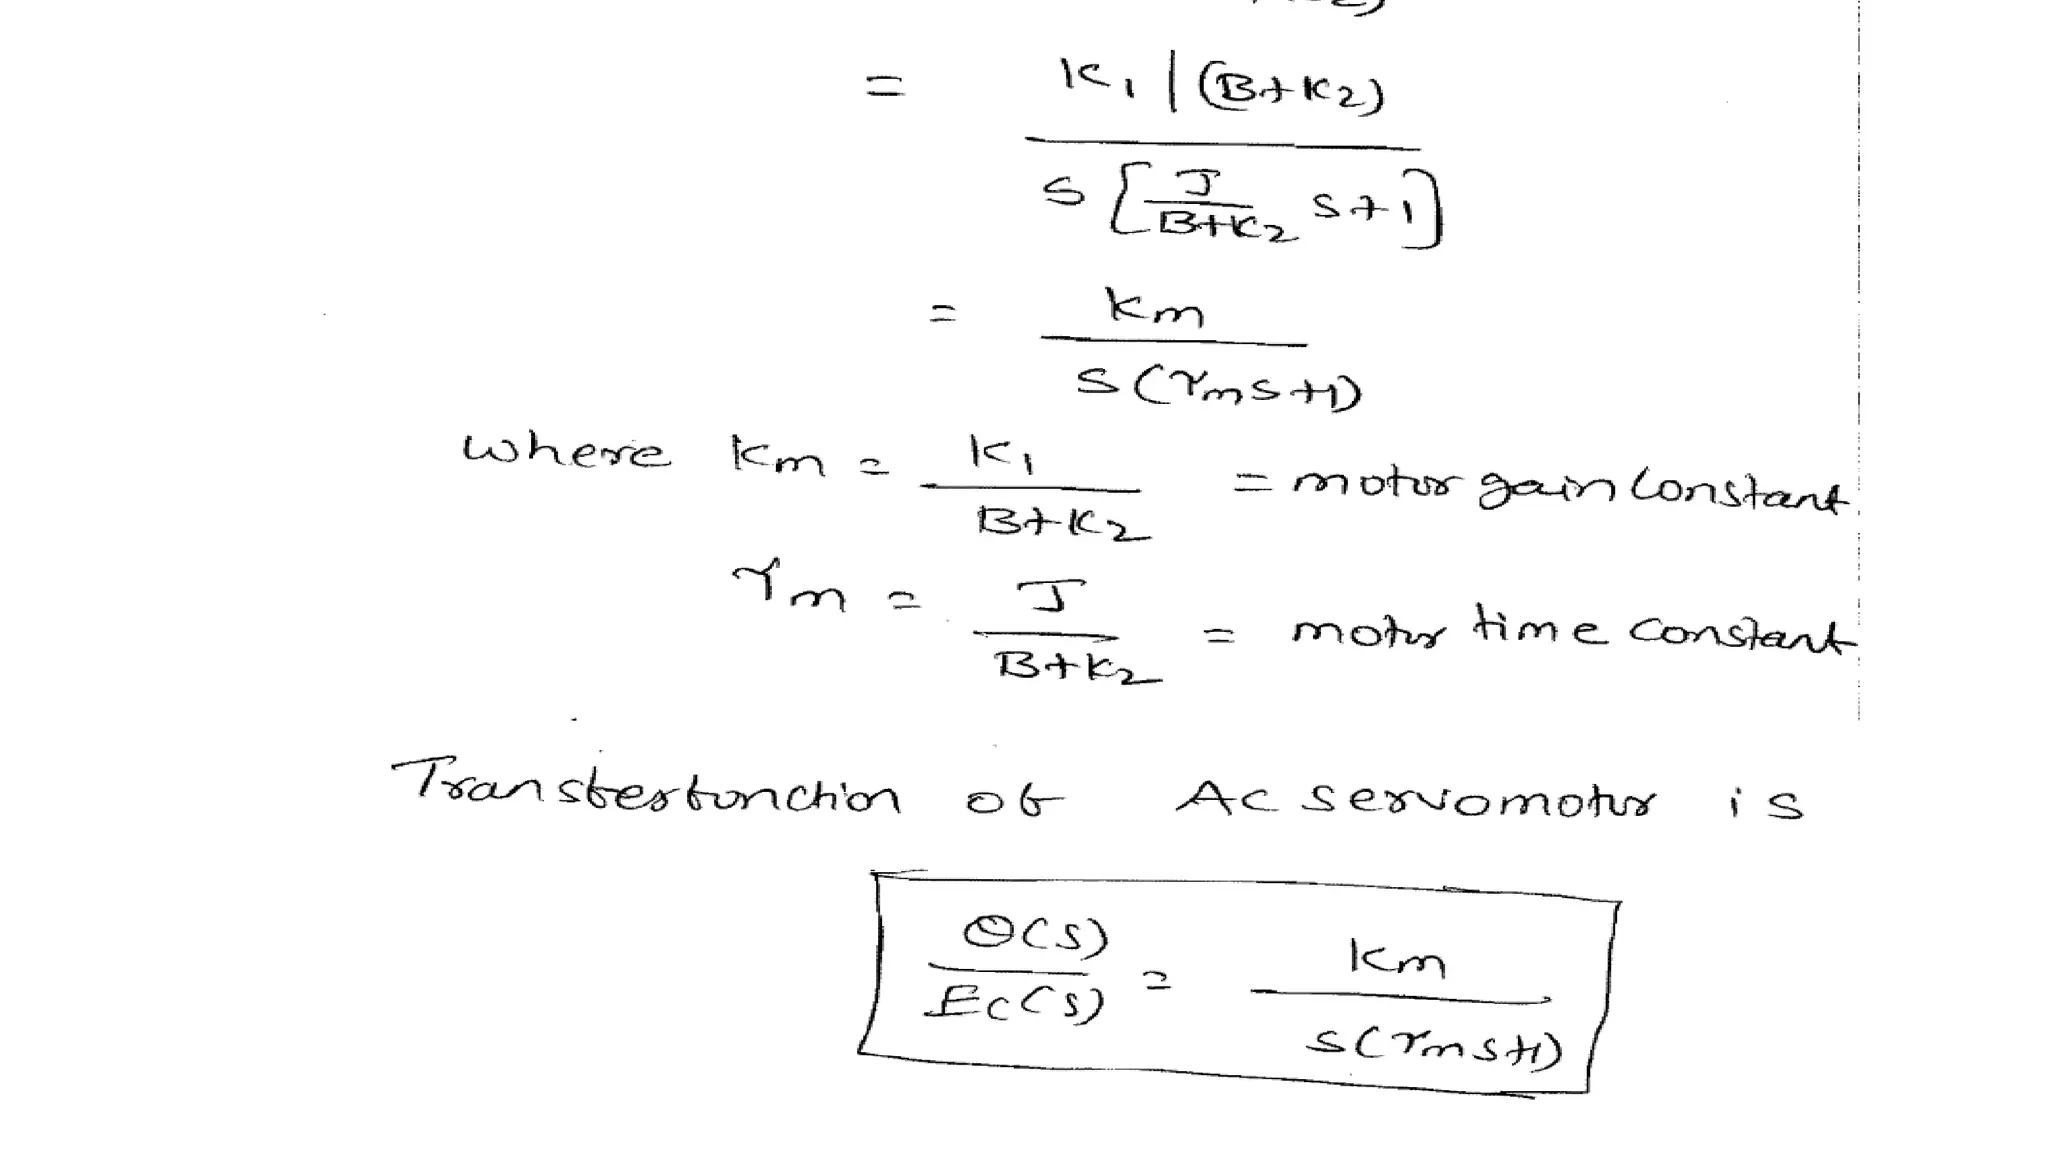 = K1 | (B+K2)
S [ J / B+K2 S+1 ]
= Km
S(τmS+1)
where Km = K1 / B+K2 = motor gain constant
τm = J / B+K2 = motor time constant
Transfer function of AC servomotor is
θ(S) / Ec(S) = Km / S(τmS+1)